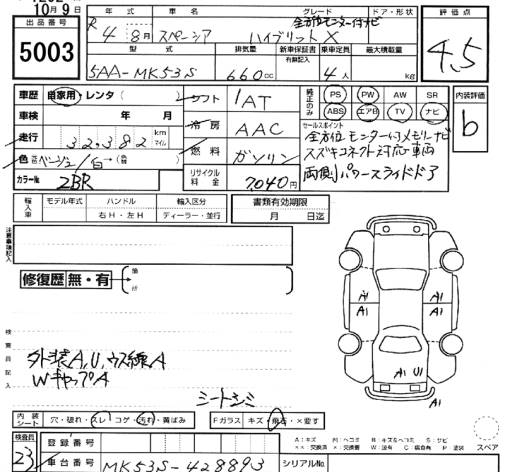 10月9日
出品番号
5003
年式 車名 グレード ドア・形状
R 4年8月 スペーシア ハイブリットX
全方位モニター付ナビ
型式 排気量 新車保証書 乗車定員 最大積載量
有無記入
5AA-MK53S 660cc 4人 kg
評価点
4.5
車歴 自家用・レンタ( )
シフト 1AT
車検 年 月
冷房 AAC
走行 32,382 km マイル
燃料 ガソリン
色 ベージュ/白→
カラーNo. 2BR
リサイクル料金 7,040円
純正のみ PS PW AW SR
ABS エアB TV ナビ
内装評価
b
セールスポイント
全方位モニター付メモリーナビ
スズキコネクト対応車両
両側パワースライドドア
輸入車 モデル年式 ハンドル 輸入区分
右H・左H ディーラー・並行
書類有効期限
月 日迄
注意事項記入
修復歴 無・有 箇所
検査員記入
外装A,U,ウス線A
WキャップA
シートシミ
A1 A1
A1 A1
A1 U1
A1
内装シート 穴・破れ・スレ・コゲ・汚れ・黄ばみ
Fガラス キズ・飛石・×要す
A:キズ U:ヘコミ B:キズ&ヘコミ S:サビ
××:交換済 ×:交換要 W:波有 C:腐食有 P:塗装
スペア
検査員
23
登録番号
車台番号 MK53S-428893
シリアルNo.